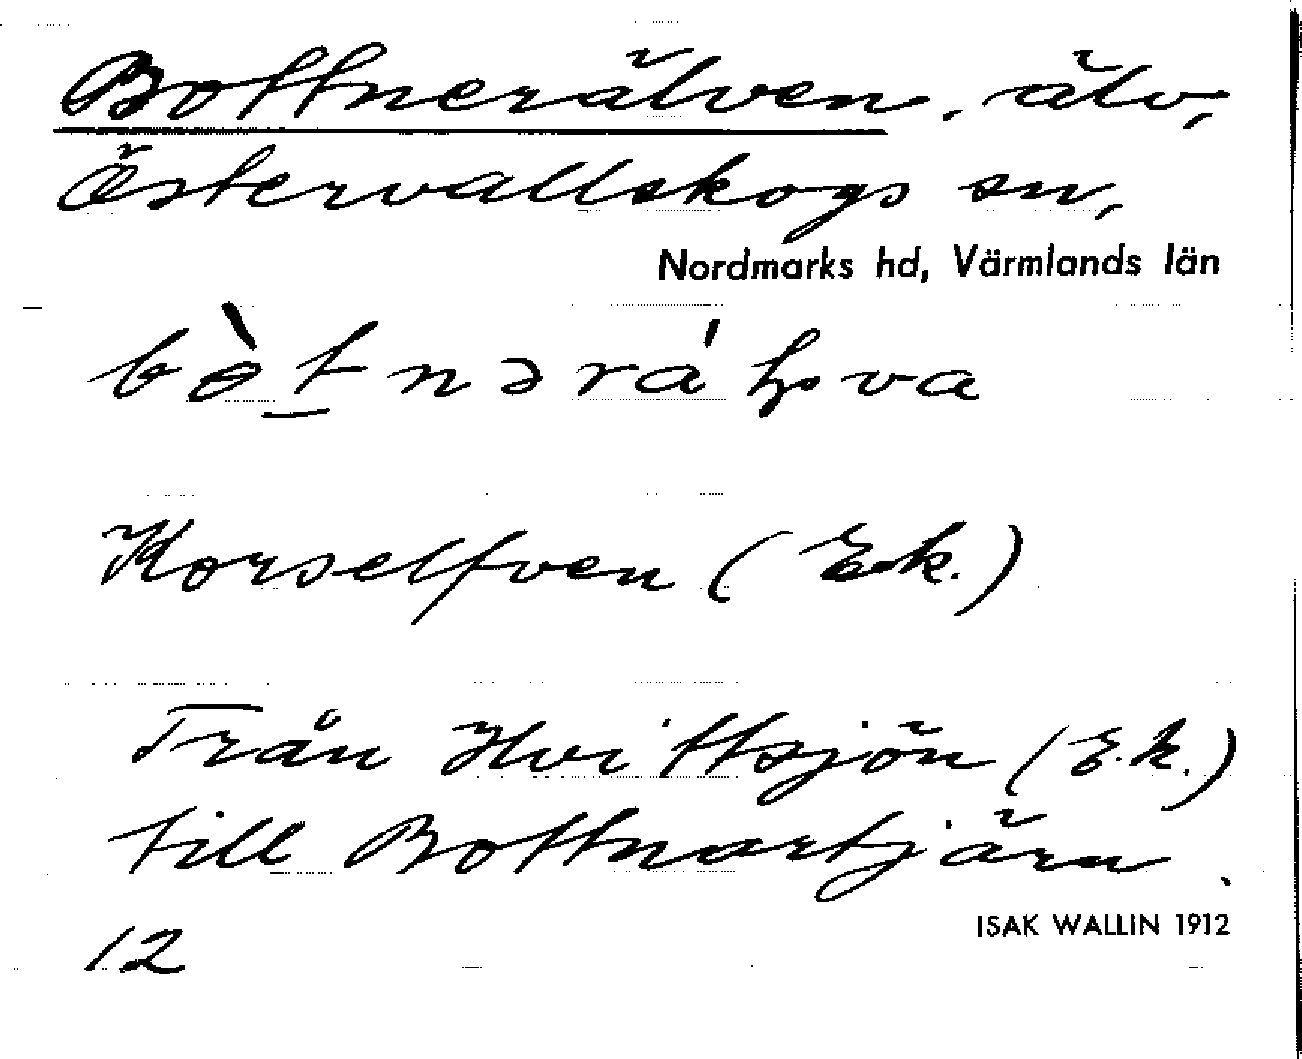 Bottnerälven, älv,
Östervallskogs sn,
Nordmarks hd, Värmlands län
bòtnərá
Korselfven (Ek.)
Från Hvittsjön (E.k.)
till Bottnartjärn.
ISAK WALLIN 1912
12